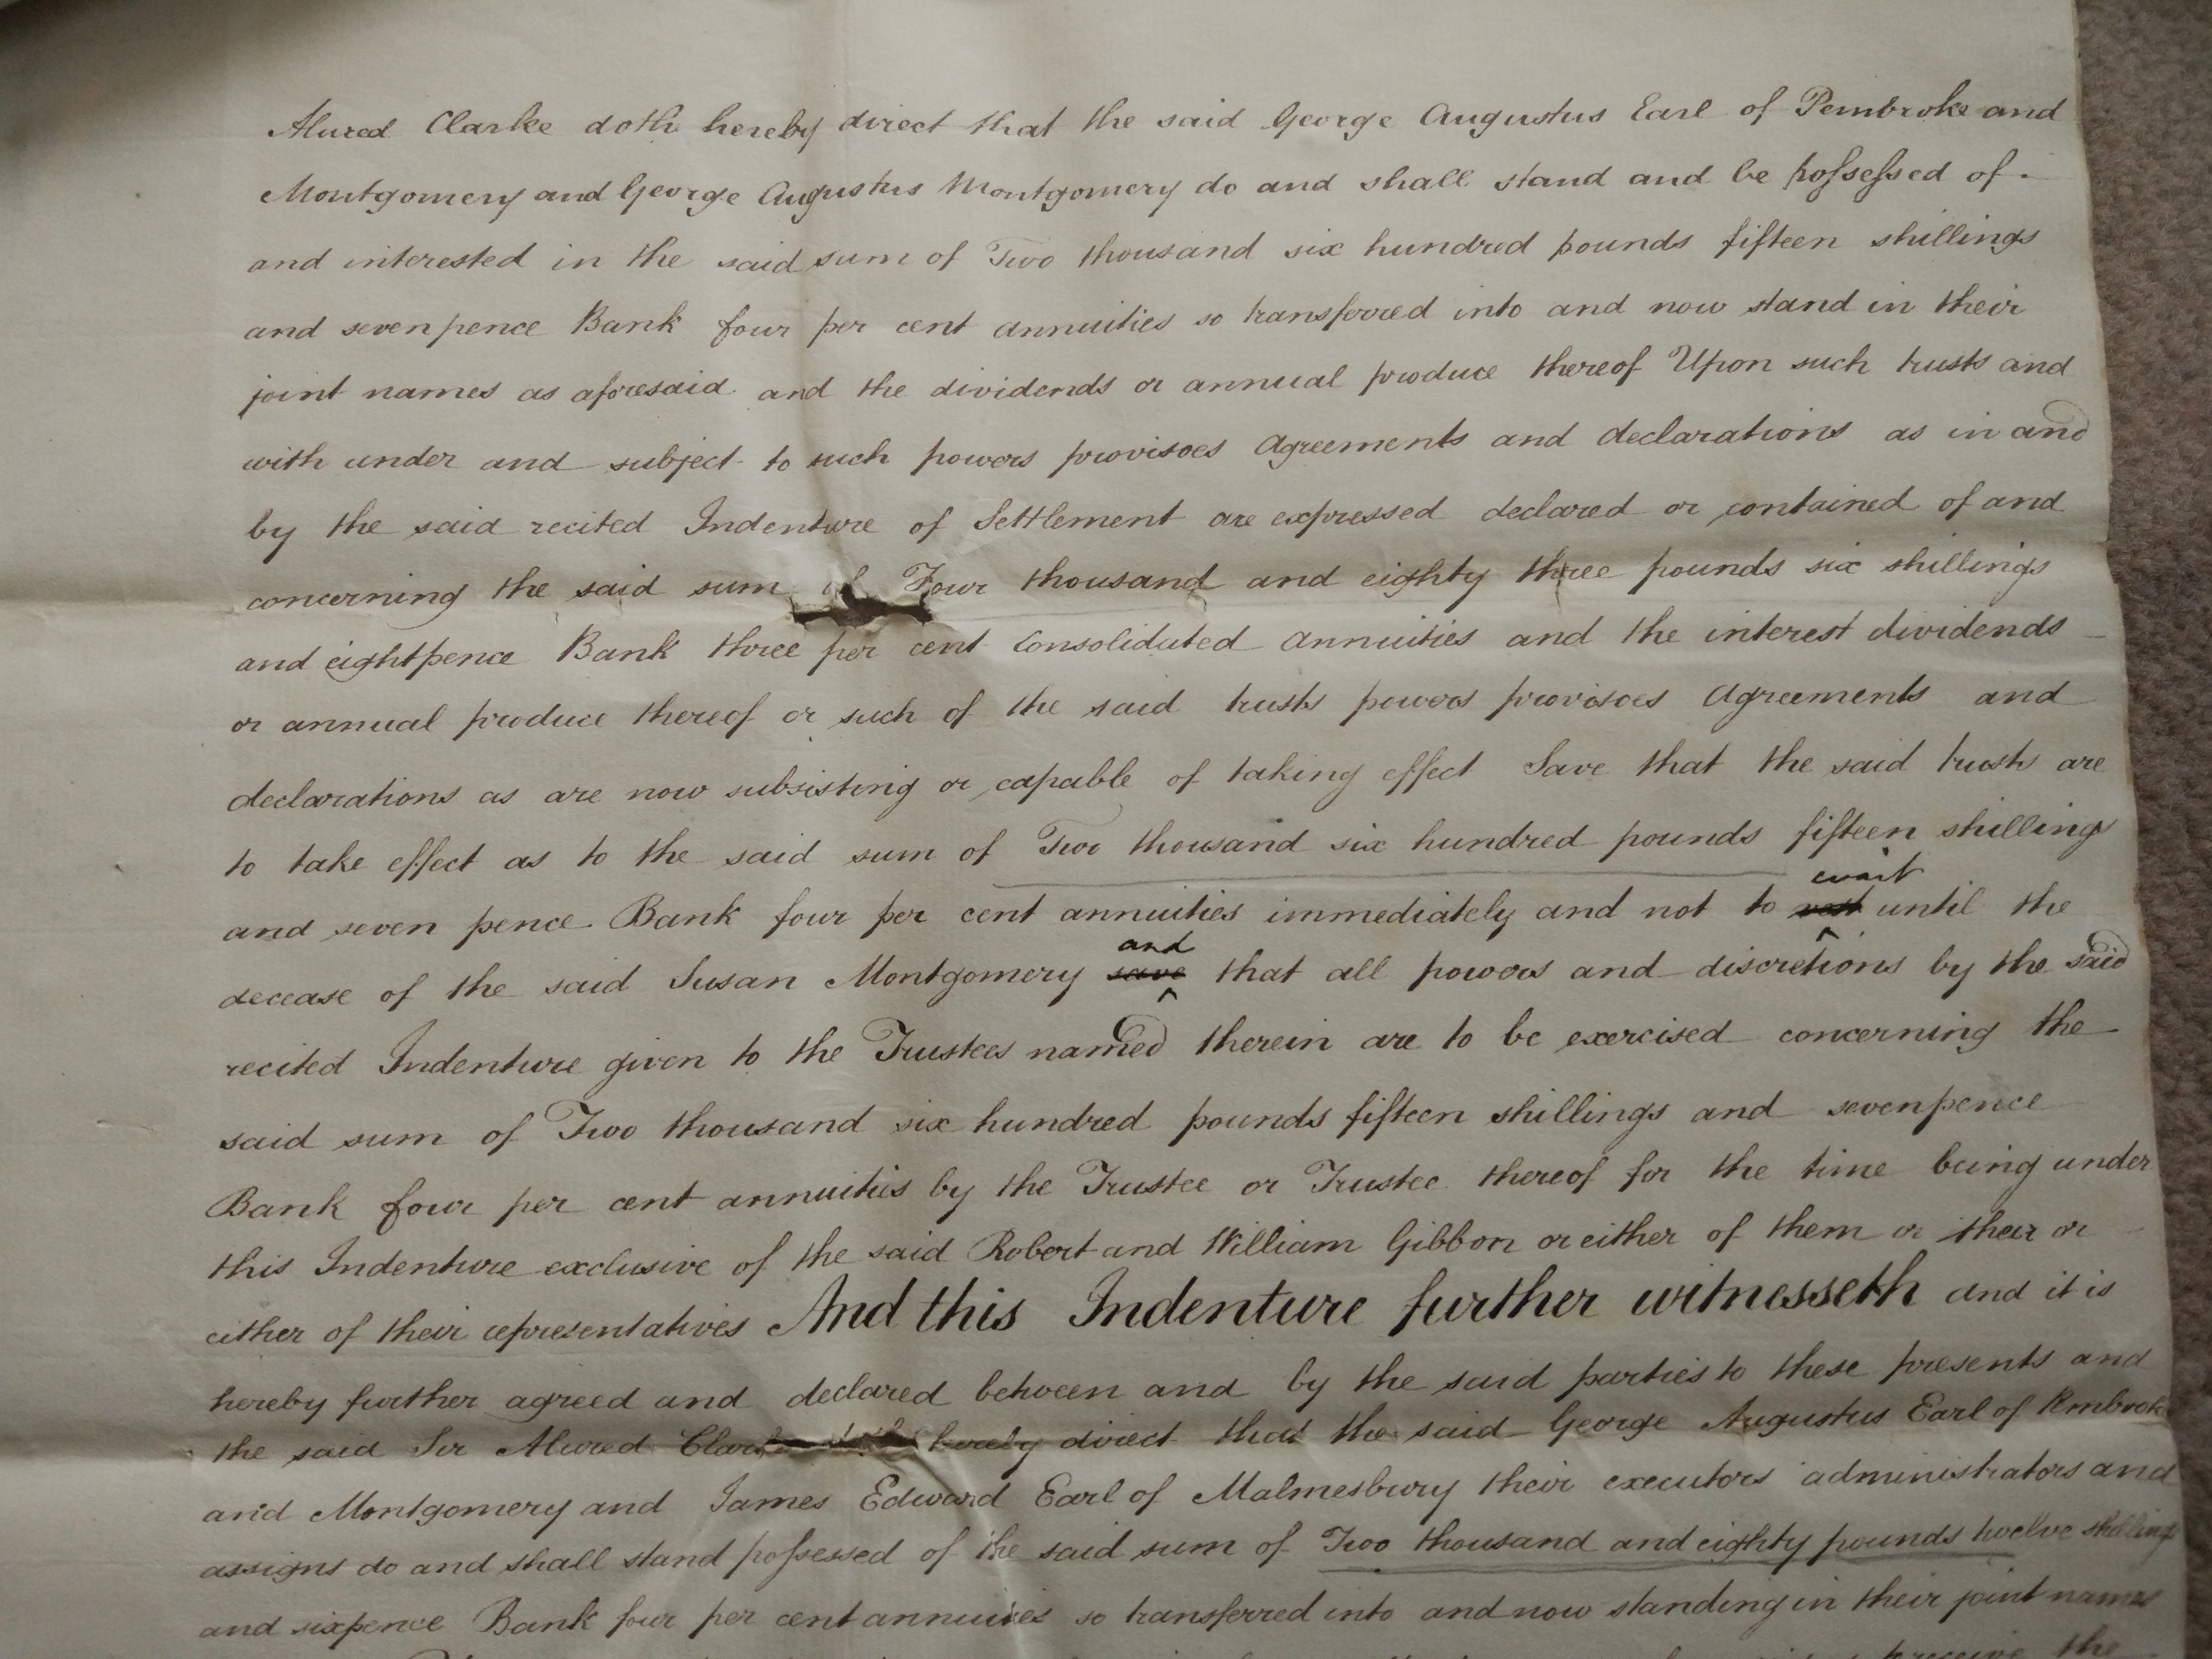 Alured Clarke doth hereby direct that the said George Augustus Earl of Pembroke and
Montgomery and George Augustus Montgomery do and shall stand and be possessed of
and interested in the said sum of Two thousand six hundred pounds fifteen shillings
and sevenpence Bank four per cent annuities so transferred into and now stand in their
joint names as aforesaid and the dividends or annual produce thereof Upon such trusts and
with under and subject to such powers provisoes Agreements and declarations as in and
by the said recited Indenture of Settlement are expressed declared or contained of and
concerning the said sum of Four thousand and eighty three pounds six shillings
and eightpence Bank three per cent Consolidated Annuities and the interest dividends
or annual produce thereof or such of the said trusts powers provisoes Agreements and
declarations as are now subsisting or capable of taking effect Save that the said trusts are
to take effect as to the said sum of Two thousand six hundred pounds fifteen shillings
and seven pence Bank four per cent annuities immediately and not to wait until the
decease of the said Susan Montgomery save and that all powers and discretions by the said
recited Indenture given to the Trustees named therein are to be exercised concerning the
said sum of Two thousand six hundred pounds fifteen shillings and sevenpence
Bank four per cent annuities by the Trustee or Trustee thereof for the time being under
this Indenture exclusive of the said Robert and William Gibbon or either of them or their or
either of their representatives And this Indenture further witnesseth and it is
hereby further agreed and declared between and by the said parties to these presents and
the said Sir Alured Clarke hereby direct that the said George Augustus Earl of Pembroke
and Montgomery and James Edward Earl of Malmesbury their executors administrators and
assigns do and shall stand possessed of the said sum of Two thousand and eighty pounds twelve shillings
and sixpence Bank four per cent annuities so transferred into and now standing in their joint names
receive the